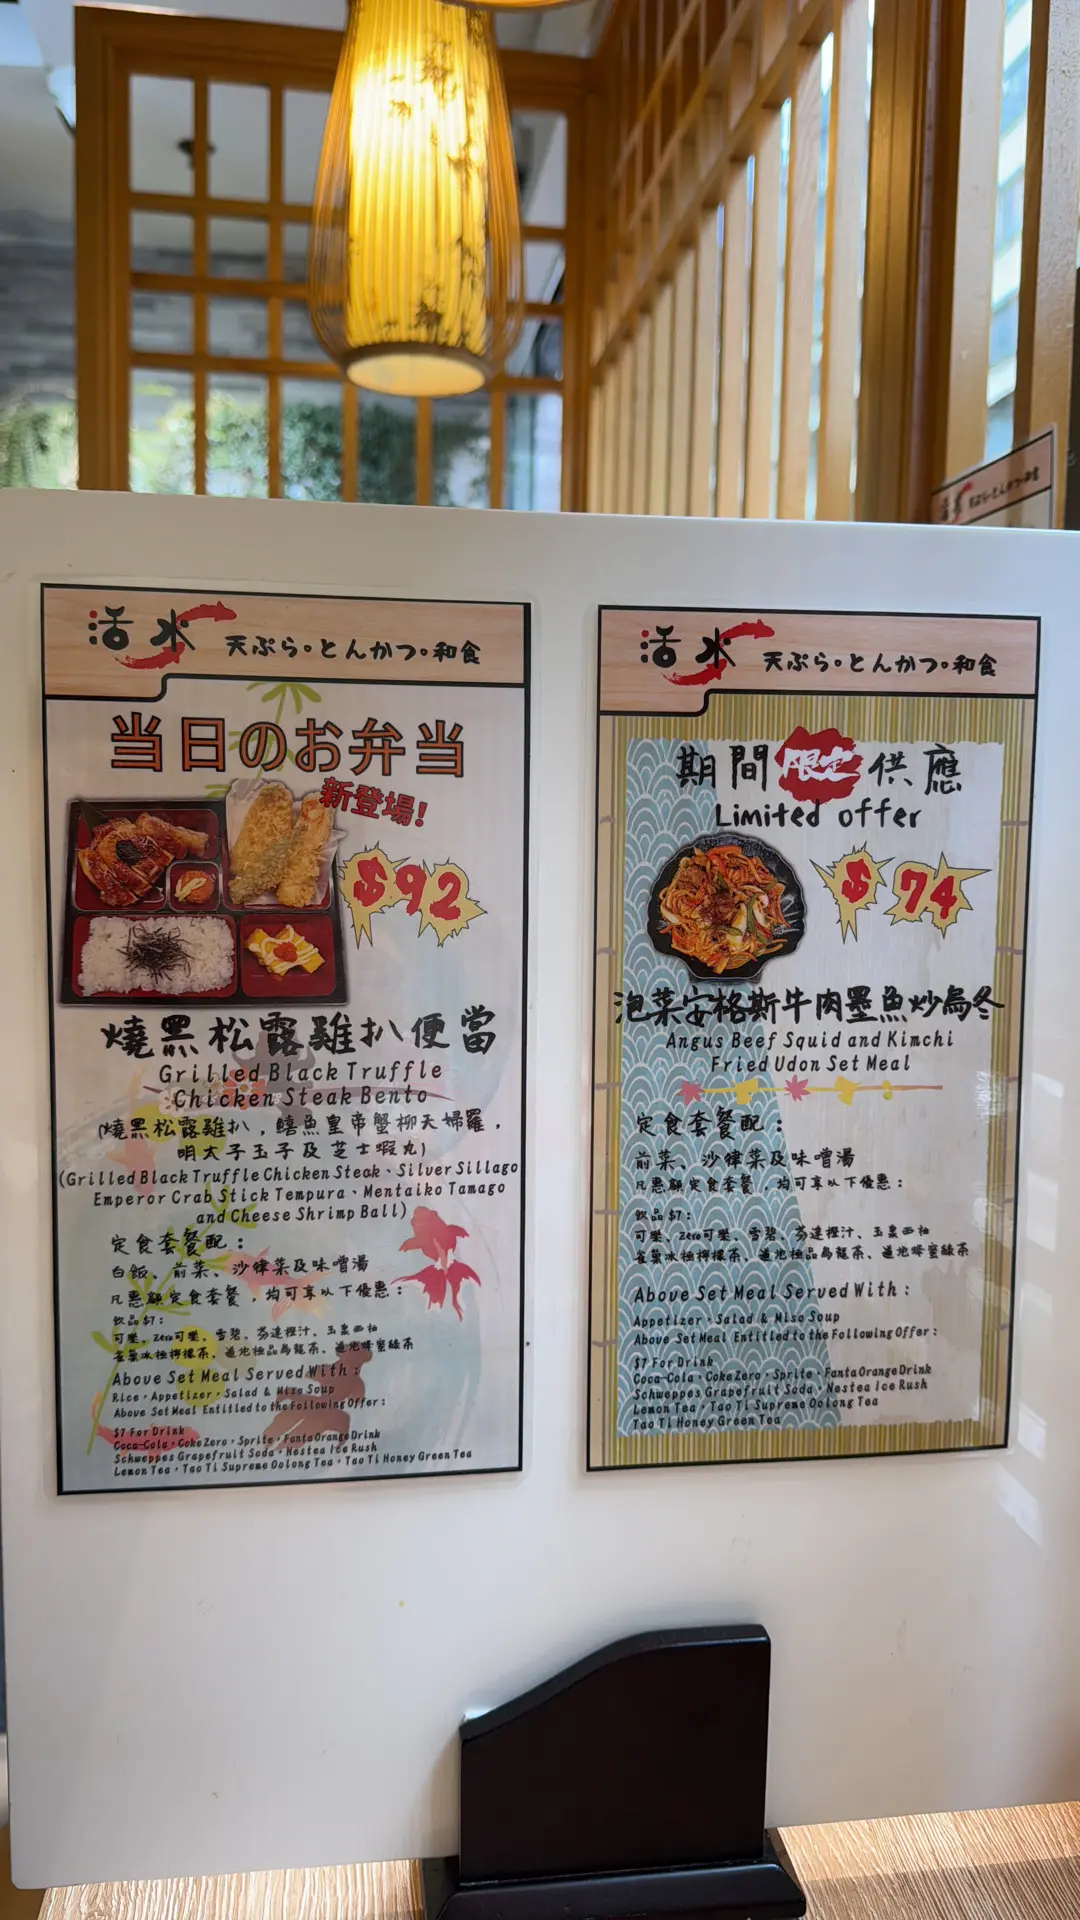 活水
天ぷら。とんかつ。和食
当日のお弁当
新登場!
$92
燒黑松露雞扒便當
Grilled Black Truffle
Chicken Steak Bento
(燒黑松露雞扒,鱚魚皇帝蟹柳天婦羅,
明太子玉子及芝士蝦丸)
(Grilled Black Truffle Chicken Steak、Silver Sillago
Emperor Crab Stick Tempura、Mentaiko Tamago
and Cheese Shrimp Ball)
定食套餐配:
白飯、前菜、沙律菜及味噌湯
凡惠顧定食套餐,均可享以下優惠:
飲品$7:
可樂、Zero可樂、雪碧、芬達橙汁、玉泉西柚
雀巢冰極檸檬茶、道地極品烏龍茶、道地蜂蜜綠茶
Above Set Meal Served With:
Rice、Appetizer、Salad & Miso Soup
Above Set Meal Entitled to the Following Offer:
$7 For Drink
Coca-Cola、Coke Zero、Sprite、Fanta Orange Drink
Schweppes Grapefruit Soda、Nestea Ice Rush
Lemon Tea、Tao Ti Supreme Oolong Tea、Tao Ti Honey Green Tea
活水
天ぷら。とんかつ。和食
期間限定供應
Limited offer
$74
泡菜安格斯牛肉墨魚炒烏冬
Angus Beef Squid and Kimchi
Fried Udon Set Meal
定食套餐配:
前菜、沙律菜及味噌湯
凡惠顧定食套餐,均可享以下優惠:
飲品$7:
可樂、Zero可樂、雪碧、芬達橙汁、玉泉西柚
雀巢冰極檸檬茶、道地極品烏龍茶、道地蜂蜜綠茶
Above Set Meal Served With:
Appetizer、Salad & Miso Soup
Above Set Meal Entitled to the Following Offer:
$7 For Drink
Coca-Cola、Coke Zero、Sprite、Fanta Orange Drink
Schweppes Grapefruit Soda、Nestea Ice Rush
Lemon Tea、Tao Ti Supreme Oolong Tea
Tao Ti Honey Green Tea
活水
天ぷら。とんかつ。和食